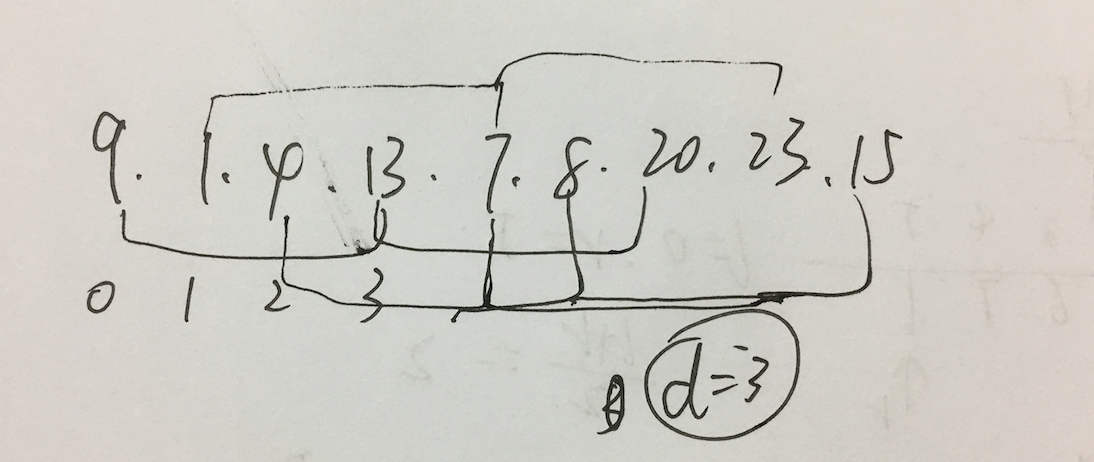 9. 1. 4. 13. 7. 8. 20. 23. 15
0 1 2 3
d=3